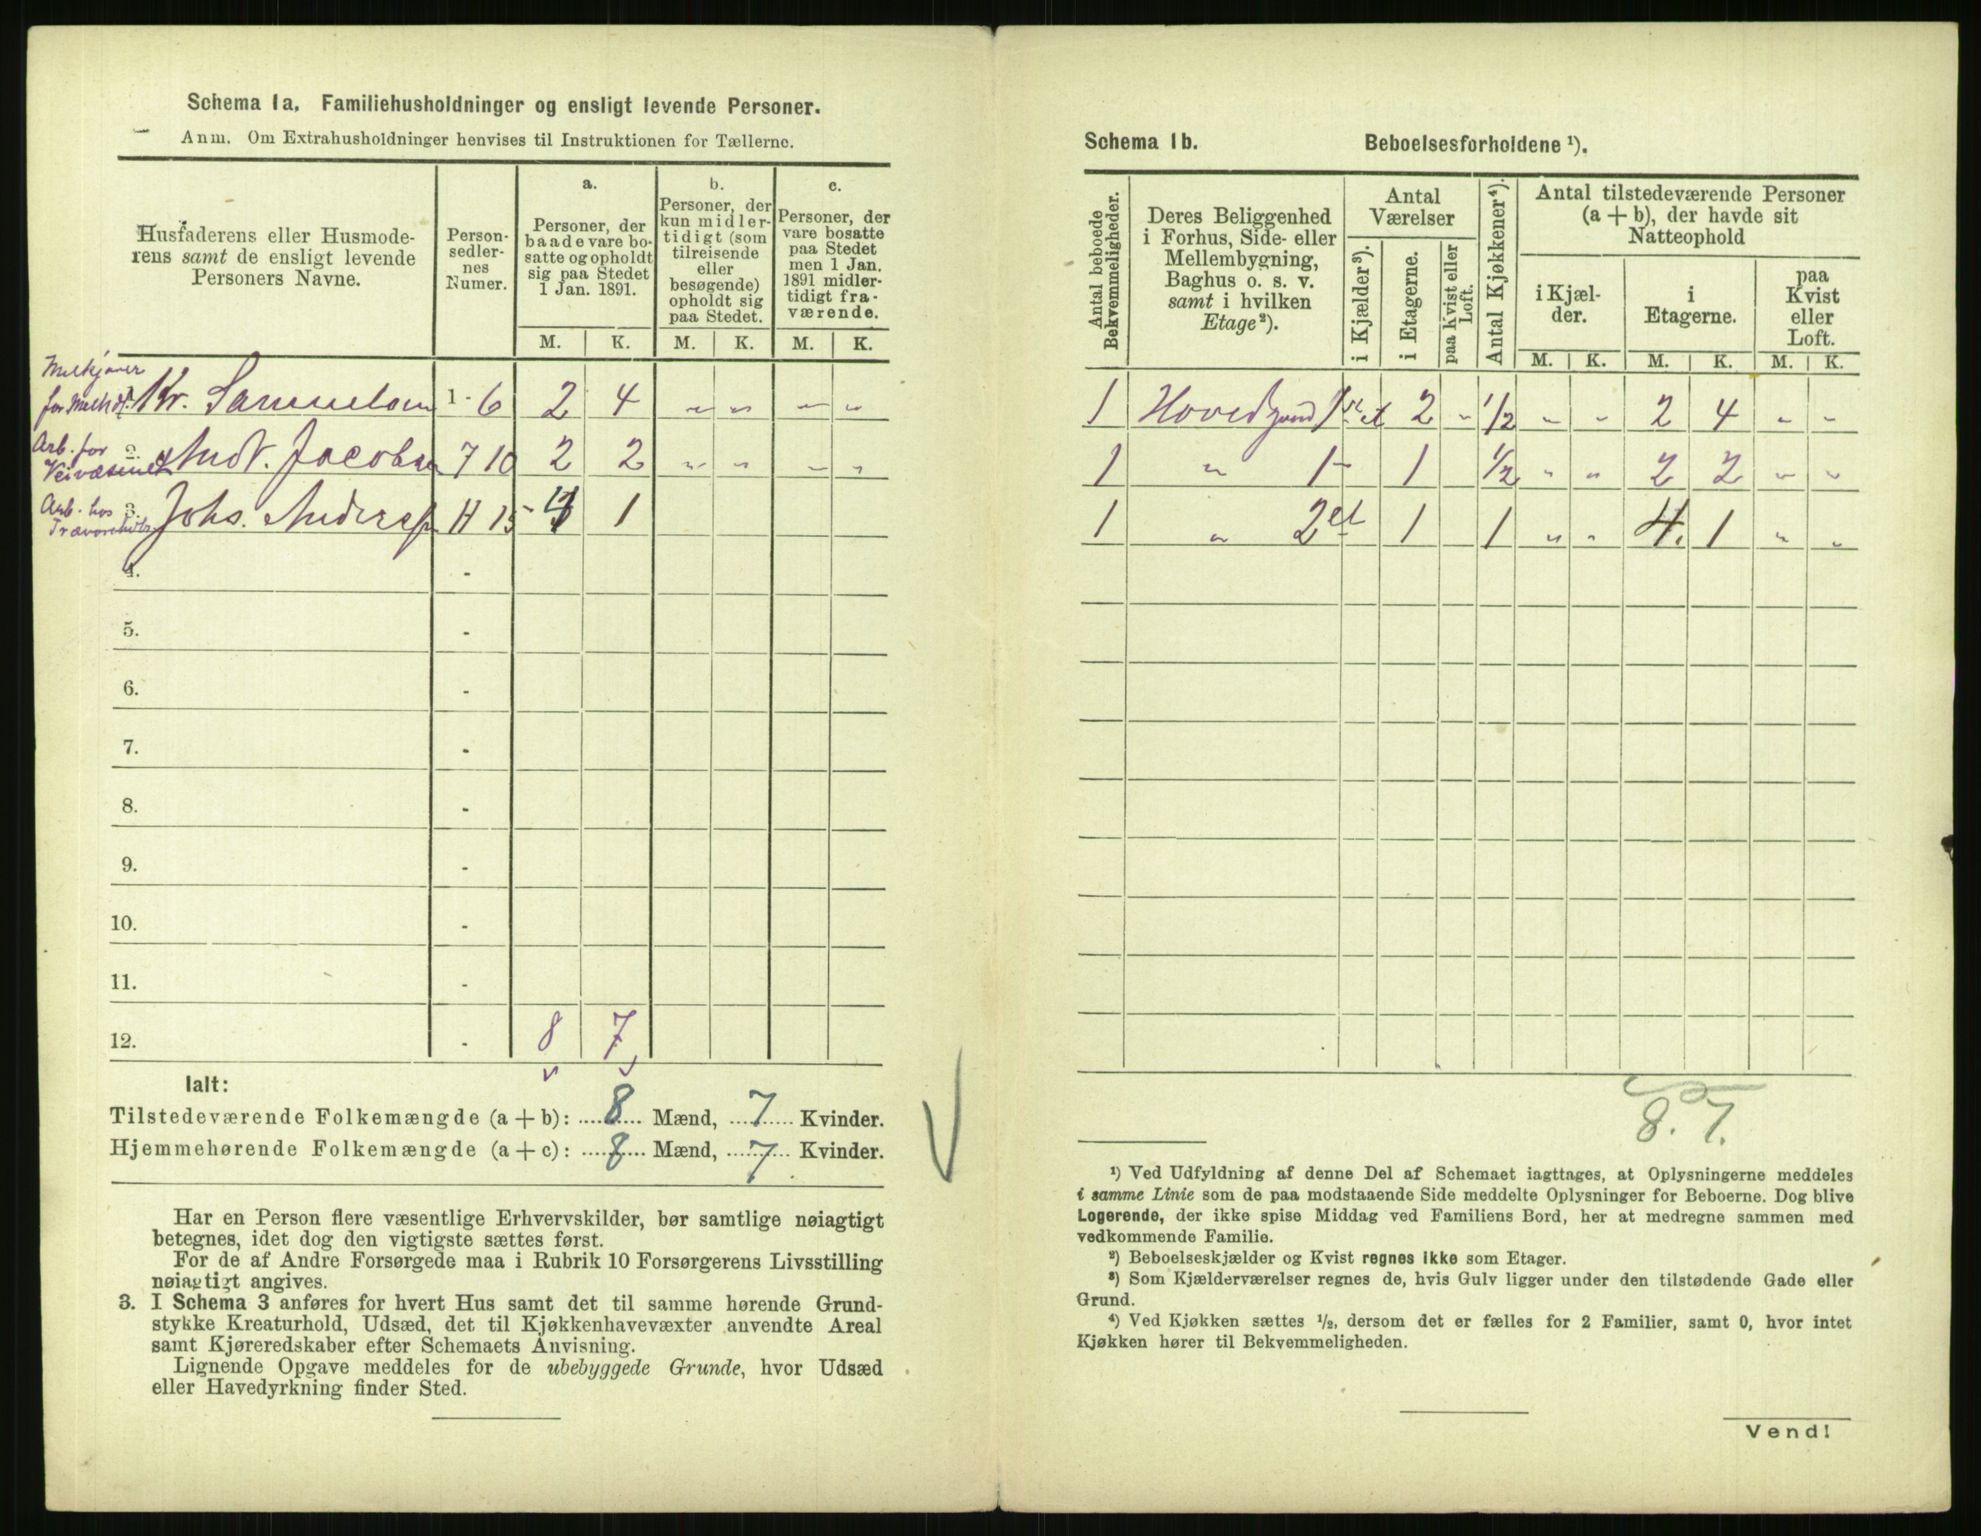 Schema 1a. Familiehusholdninger og ensligt levende Personer.
Anm. Om Extrahusholdninger henvises til Instruktionen for Tællerne.
Husfaderens eller Husmode-
rens samt de ensligt levende
Personers Navne.
Person-
sedler-
nes
Numer.
a.
Personer, der
baade vare bo-
satte og opholdt
sig paa Stedet
1 Jan. 1891.
b.
Personer, der
kun midler-
tidigt (som
tilreisende
eller
besøgende)
opholdt sig
paa Stedet.
c.
Personer, der
vare bosatte
paa Stedet
men 1 Jan.
1891 midler-
tidigt fra-
værende.
M. K. M. K. M. K.
Melkjører
for Melkh. 1. Kr. Samuelsen 1-6 2 4 " " " "
Arb. for
Veivæsenet 2. Andr. Jacobsen 7 10 2 2 " " " "
Arb. hos
3. Johs. Anders 11 15 4 1
4. -
5. -
6. -
7. -
8. -
9. -
10. -
11. -
12. - 8 7
Ialt:
Tilstedeværende Folkemængde (a + b): 8 Mænd, 7 Kvinder.
Hjemmehørende Folkemængde (a + c): 8 Mænd, 7 Kvinder.
Har en Person flere væsentlige Erhvervskilder, bør samtlige nøiagtigt
betegnes, idet dog den vigtigste sættes først.
For de af Andre Forsørgede maa i Rubrik 10 Forsørgerens Livsstilling
nøiagtigt angives.
3. I Schema 3 anføres for hvert Hus samt det til samme hørende Grund-
stykke Kreaturhold, Udsæd, det til Kjøkkenhavevæxter anvendte Areal
samt Kjøreredskaber efter Schemaets Anvisning.
Lignende Opgave meddeles for de ubebyggede Grunde, hvor Udsæd
eller Havedyrkning finder Sted.
Schema 1b. Beboelsesforholdene ¹).
Antal beboede
Bekvemmeligheder.
Deres Beliggenhed
i Forhus, Side- eller
Mellembygning,
Baghus o. s. v.
samt i hvilken
Etage²).
Antal
Værelser
i Kjælder³).
i Etagerne.
paa Kvist eller
Loft.
Antal Kjøkkener⁴).
Antal tilstedeværende Personer
(a + b), der havde sit
Natteophold
i Kjæl-
der.
i
Etagerne.
paa
Kvist
eller
Loft.
M. K. M. K. M. K.
1 Hovedgaard 1ste et 2 " 1/2 " " 2 4 " "
1 " 1- 1 1/2 " " 2 2 " "
1 " 2et 1 1 " " 4. 1 " "
8. 7.
¹) Ved Udfyldning af denne Del af Schemaet iagttages, at Oplysningerne meddeles
i samme Linie som de paa modstaaende Side meddelte Oplysninger for Beboerne. Dog blive
Logerende, der ikke spise Middag ved Familiens Bord, her at medregne sammen med
vedkommende Familie.
²) Beboelseskjælder og Kvist regnes ikke som Etager.
³) Som Kjælderværelser regnes de, hvis Gulv ligger under den tilstødende Gade eller
Grund.
⁴) Ved Kjøkken sættes ½, dersom det er fælles for 2 Familier, samt 0, hvor intet
Kjøkken hører til Bekvemmeligheden.
Vend!